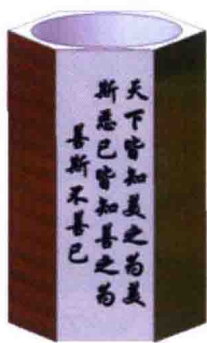 天下皆知美之为美
斯恶已皆知善之为
善斯不善已